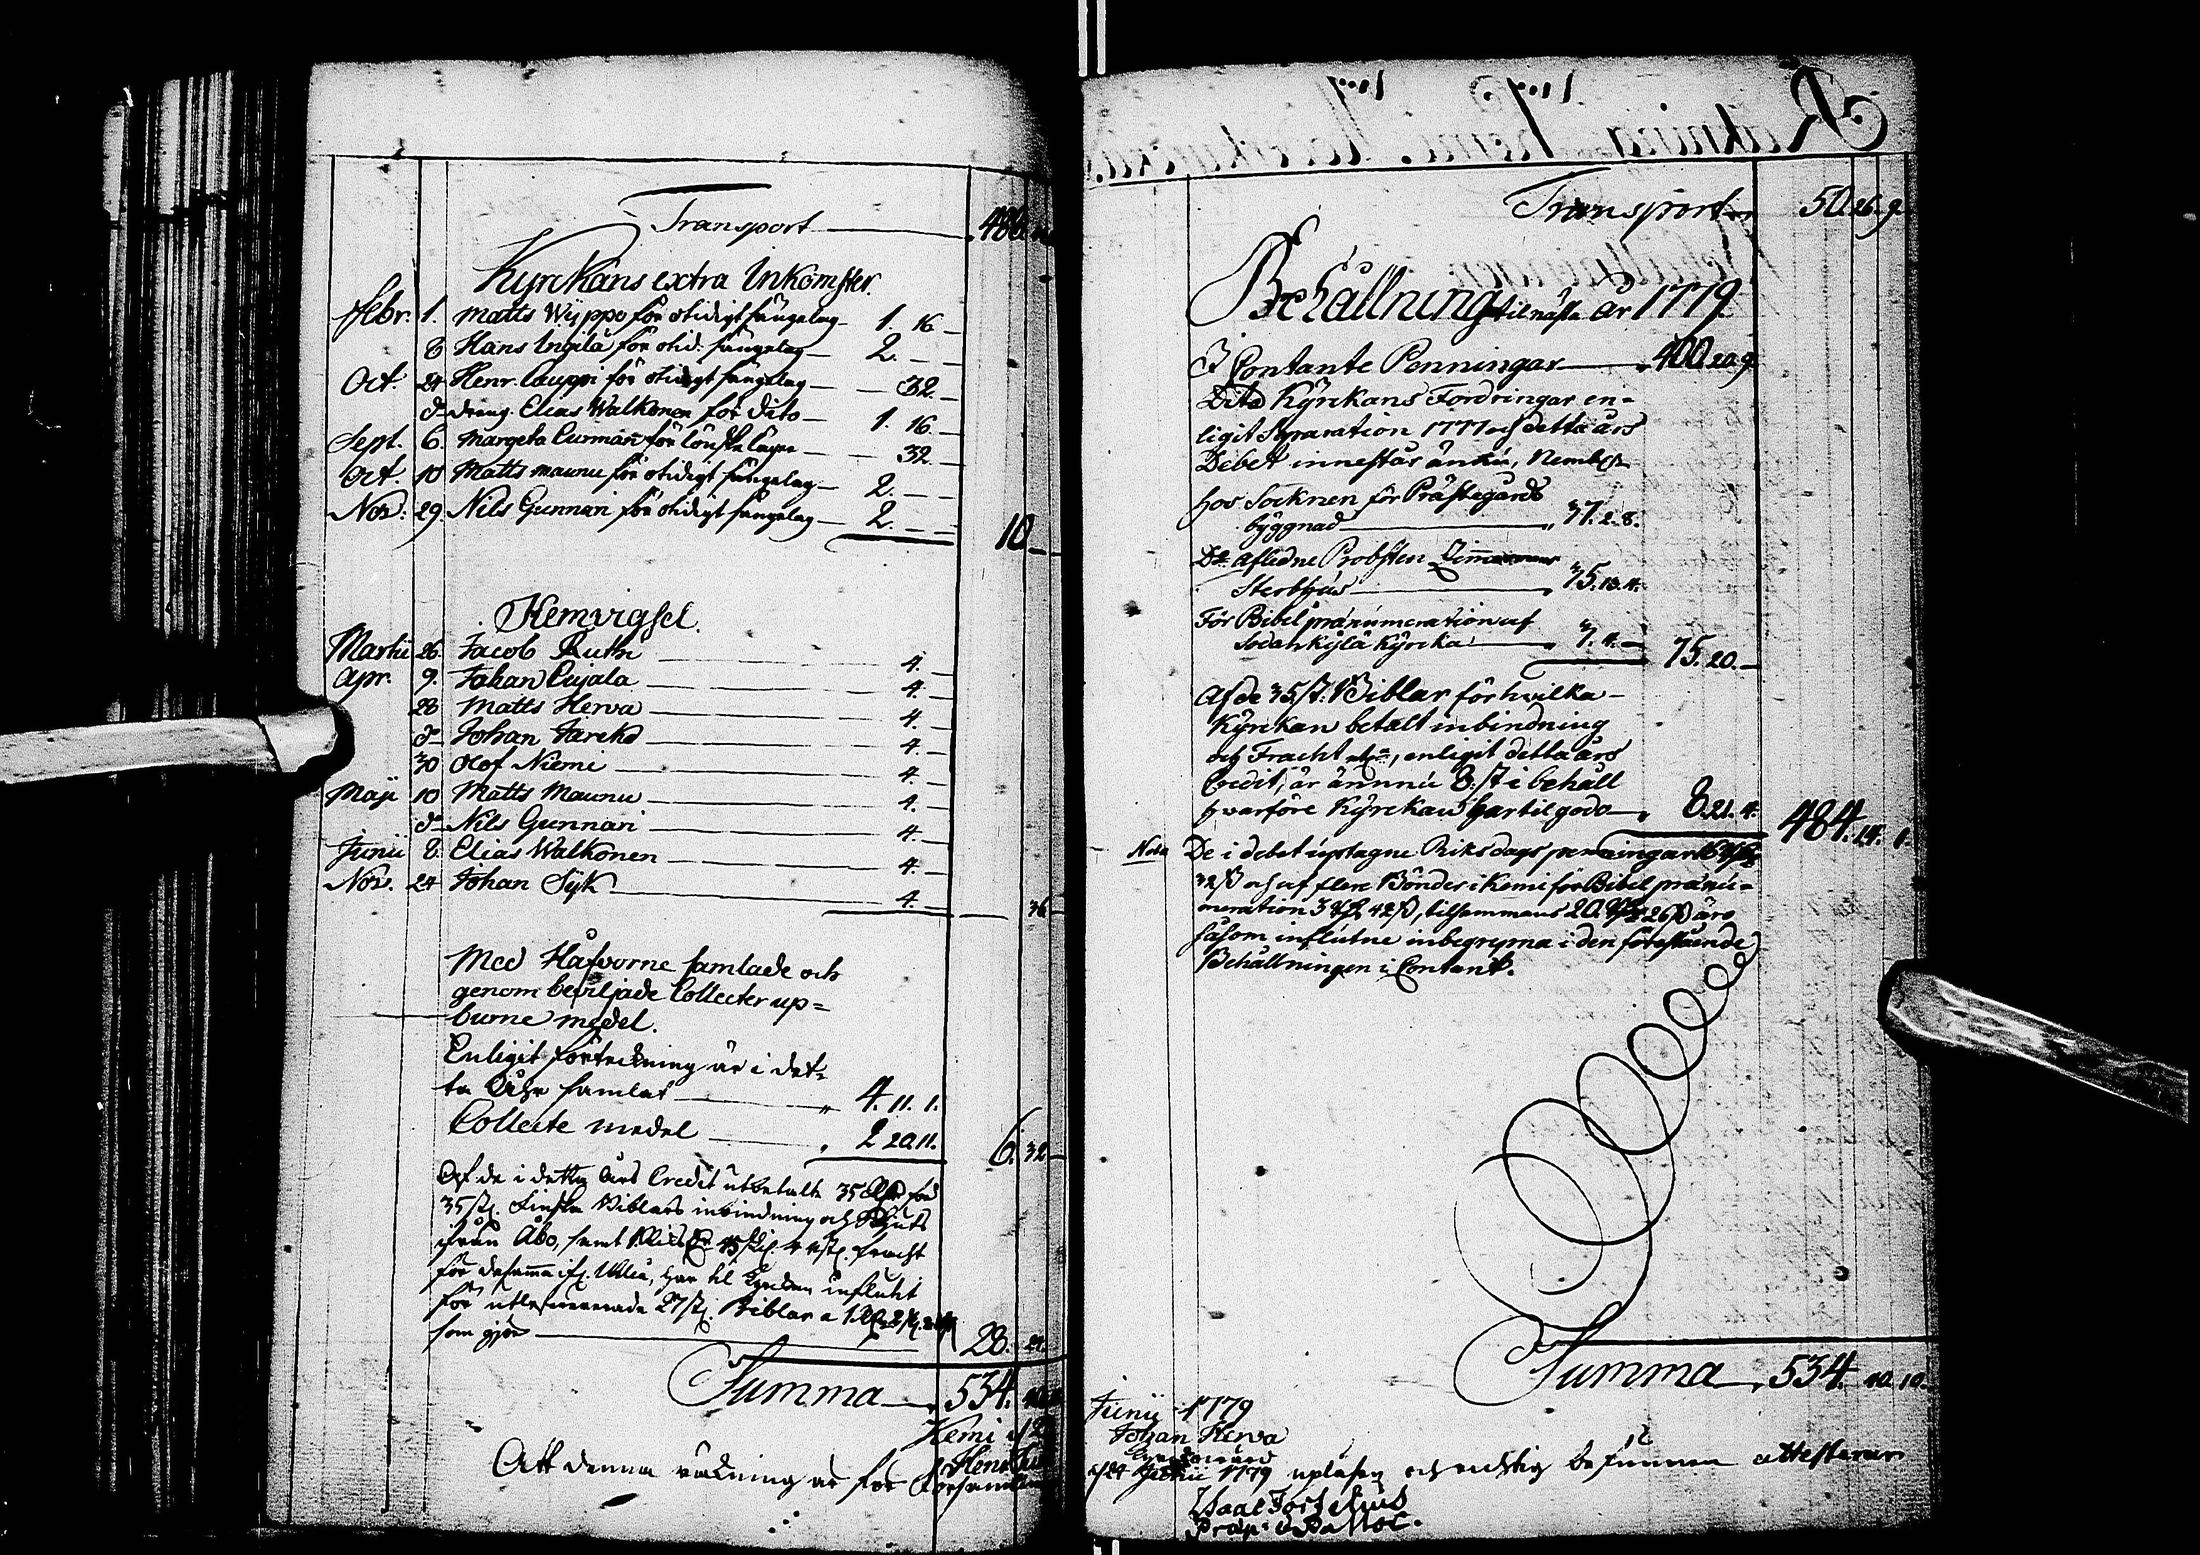 Transport 486.
Kyrckans extra Inkomster.
Febr. 1. Matts Wyppo för otidigt sängelag 1. 16.
8 Hans Ingilä för otid. sängelag 2.
Oct. 24 Henr. Lauppi för otidigt sängelag 32.
do dräng. Elias Walkonen för dito 1. 16
Sept. 6. Margeta Curman för lönska läger 32
Oct. 10 Matts Maunu för otidigt sängelag 2.
Nov. 29. Nils Gunnari för otidigt sängelag 2.
10
Hemvigsel.
Martii 26. Jacob Ruth 4.
Apr. 9. Johan Cujala 4.
28 Matts Herva 4.
do Johan Jarcko 4.
30 Olof Niemi 4.
Maji 10 Matts Maunu 4.
do Nils Gunnari 4.
Junii 8. Elias Walkonen 4.
Nov. 24 Johan Syk 4. 36
Med Håfvorne samlade och
genom beviljade Collecter up=
burne medel.
Enligit förteckning är i det=
ta Åhr samlat 4. 11. 1.
Collecte medel 2 20. 11. 6. 32
Af de i detta års Credit utbetalte 35 för
35 st. Finska Biblars inbindning och
ifrån Åbo, samt fracht
för desamma if. Uleå, har til Kyrckan influtit
för 27 st. Biblar a 1
som gjör 28. 21.
Summa 534.
Kemi d. 2
Att denna räkning är för Församl
Transport 50. 26. 9.
Behållning til nästa År 1779
I Contante Penningar 400 20. 9.
Dito Kyrckans Fordringar en=
ligit Separation 1777 och detta års
Debet innestår ännu, Neml.
hos Socknen för Prästegårds
byggnad 37. 2. 8.
Do Afledne Probsten
Sterbhus 35. 13. 4.
För Bibel pränumeration af
Sodankylä Kyrcka 3. 4. 75. 20.
Af de 35 st: Biblar för hvilka
Kyrckan betalt inbindning
och Fracht, enligit detta års
Credit, är ännu 8. st i behåll
hvarföre Kyrckan har til godo 8. 21. 4. 484. 14. 1.
Nota De i debet uptagne Riksdags penningar
32 ß och af flere Bönder i Kemi för Bibel pränu=
meration 3 42 ß, tilsammans 20. 26 ß äro
såsom influtne inbegrepna i den förestående
Behållningen i Contant.
Summa 534. 40. 10.
Junii 1779
Johan Herva
Kyrckovärd
d. 24 Junii 1779 upläsen och richtig befunnen attesterar
Isaac Fortelius
Präp: & Past Loc.